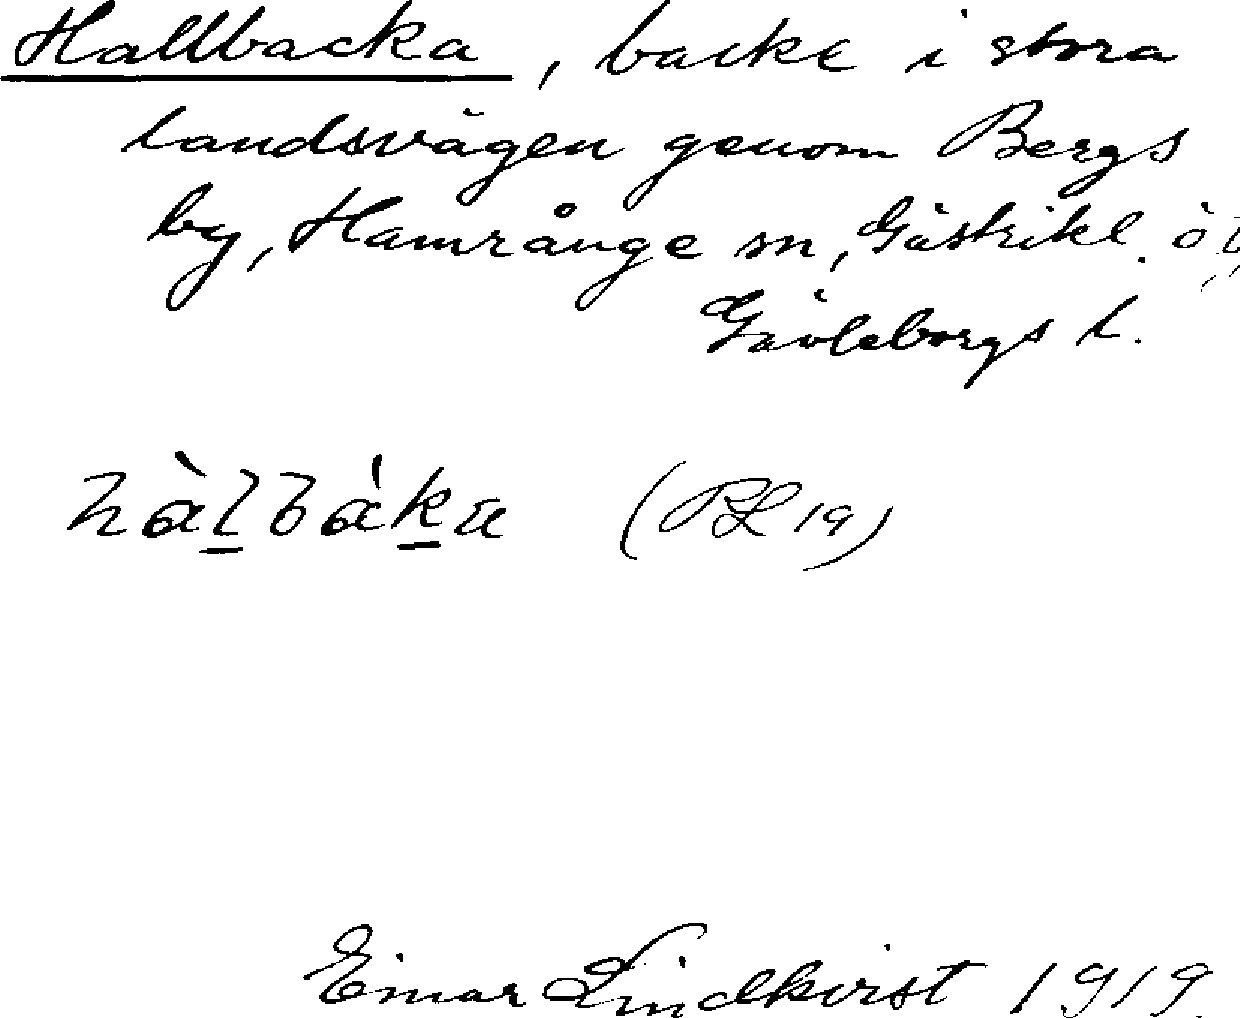 Hallbacka, backe i stora
landsvägen genom Bergs
by, Hamrånge sn, Gästrikl. öt,
Gävleborgs l.
hàlbáka (BL 19)
Einar Lindkvist 1919.